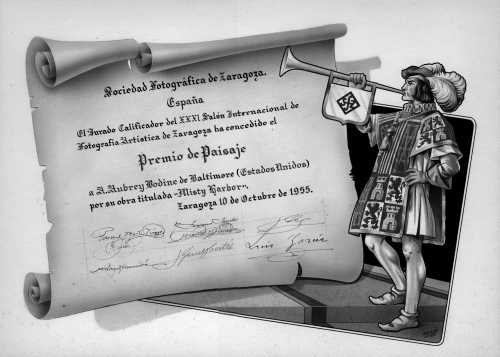 Sociedad Fotográfica de Zaragoza.
España
El Jurado Calificador del XXXI Salón Internacional de
Fotografía Artística de Zaragoza ha concedido el
Premio de Paisaje
a A. Aubrey Bodine de Baltimore (Estados Unidos)
por su obra titulada «Misty Harbor».
Zaragoza 10 de Octubre de 1955.
Luis García